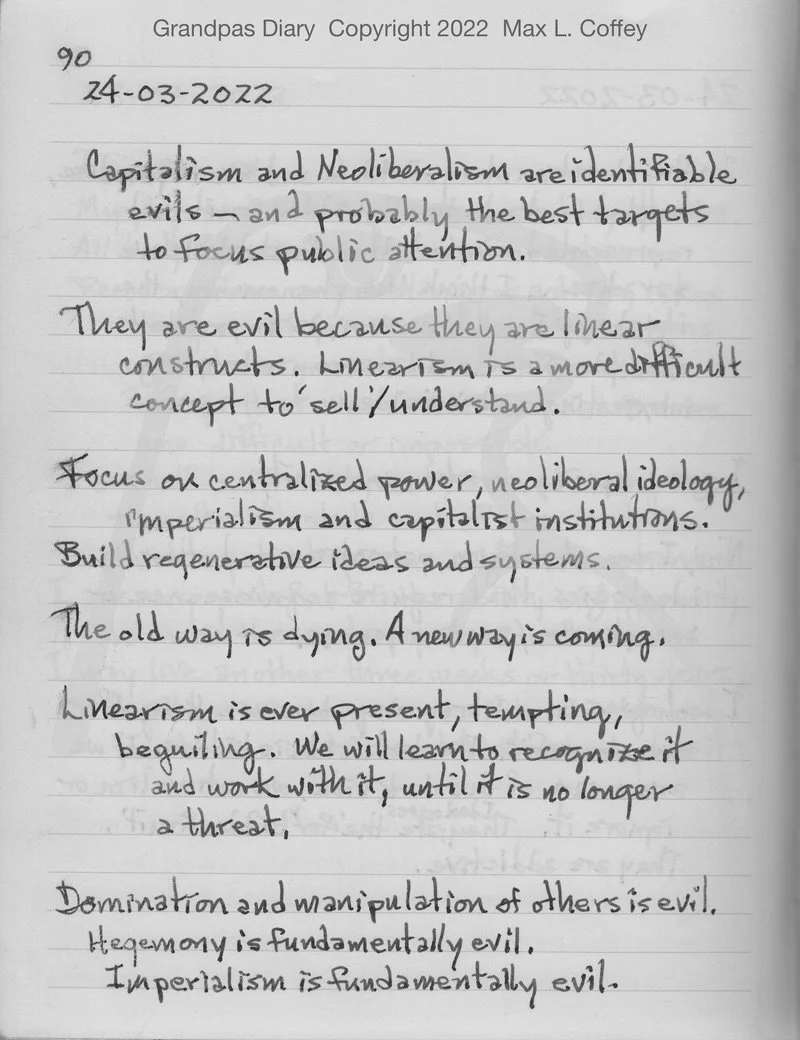 Grandpas Diary Copyright 2022 Max L. Coffey
90
24-03-2022
Capitalism and Neoliberalism are identifiable
evils — and probably the best targets
to focus public attention.
They are evil because they are linear
constructs. Linearism is a more difficult
concept to 'sell'/understand.
Focus on centralized power, neoliberal ideology,
imperialism and capitalist institutions.
Build regenerative ideas and systems.
The old way is dying. A new way is coming.
Linearism is ever present, tempting,
beguiling. We will learn to recognize it
and work with it, until it is no longer
a threat.
Domination and manipulation of others is evil.
Hegemony is fundamentally evil.
Imperialism is fundamentally evil.